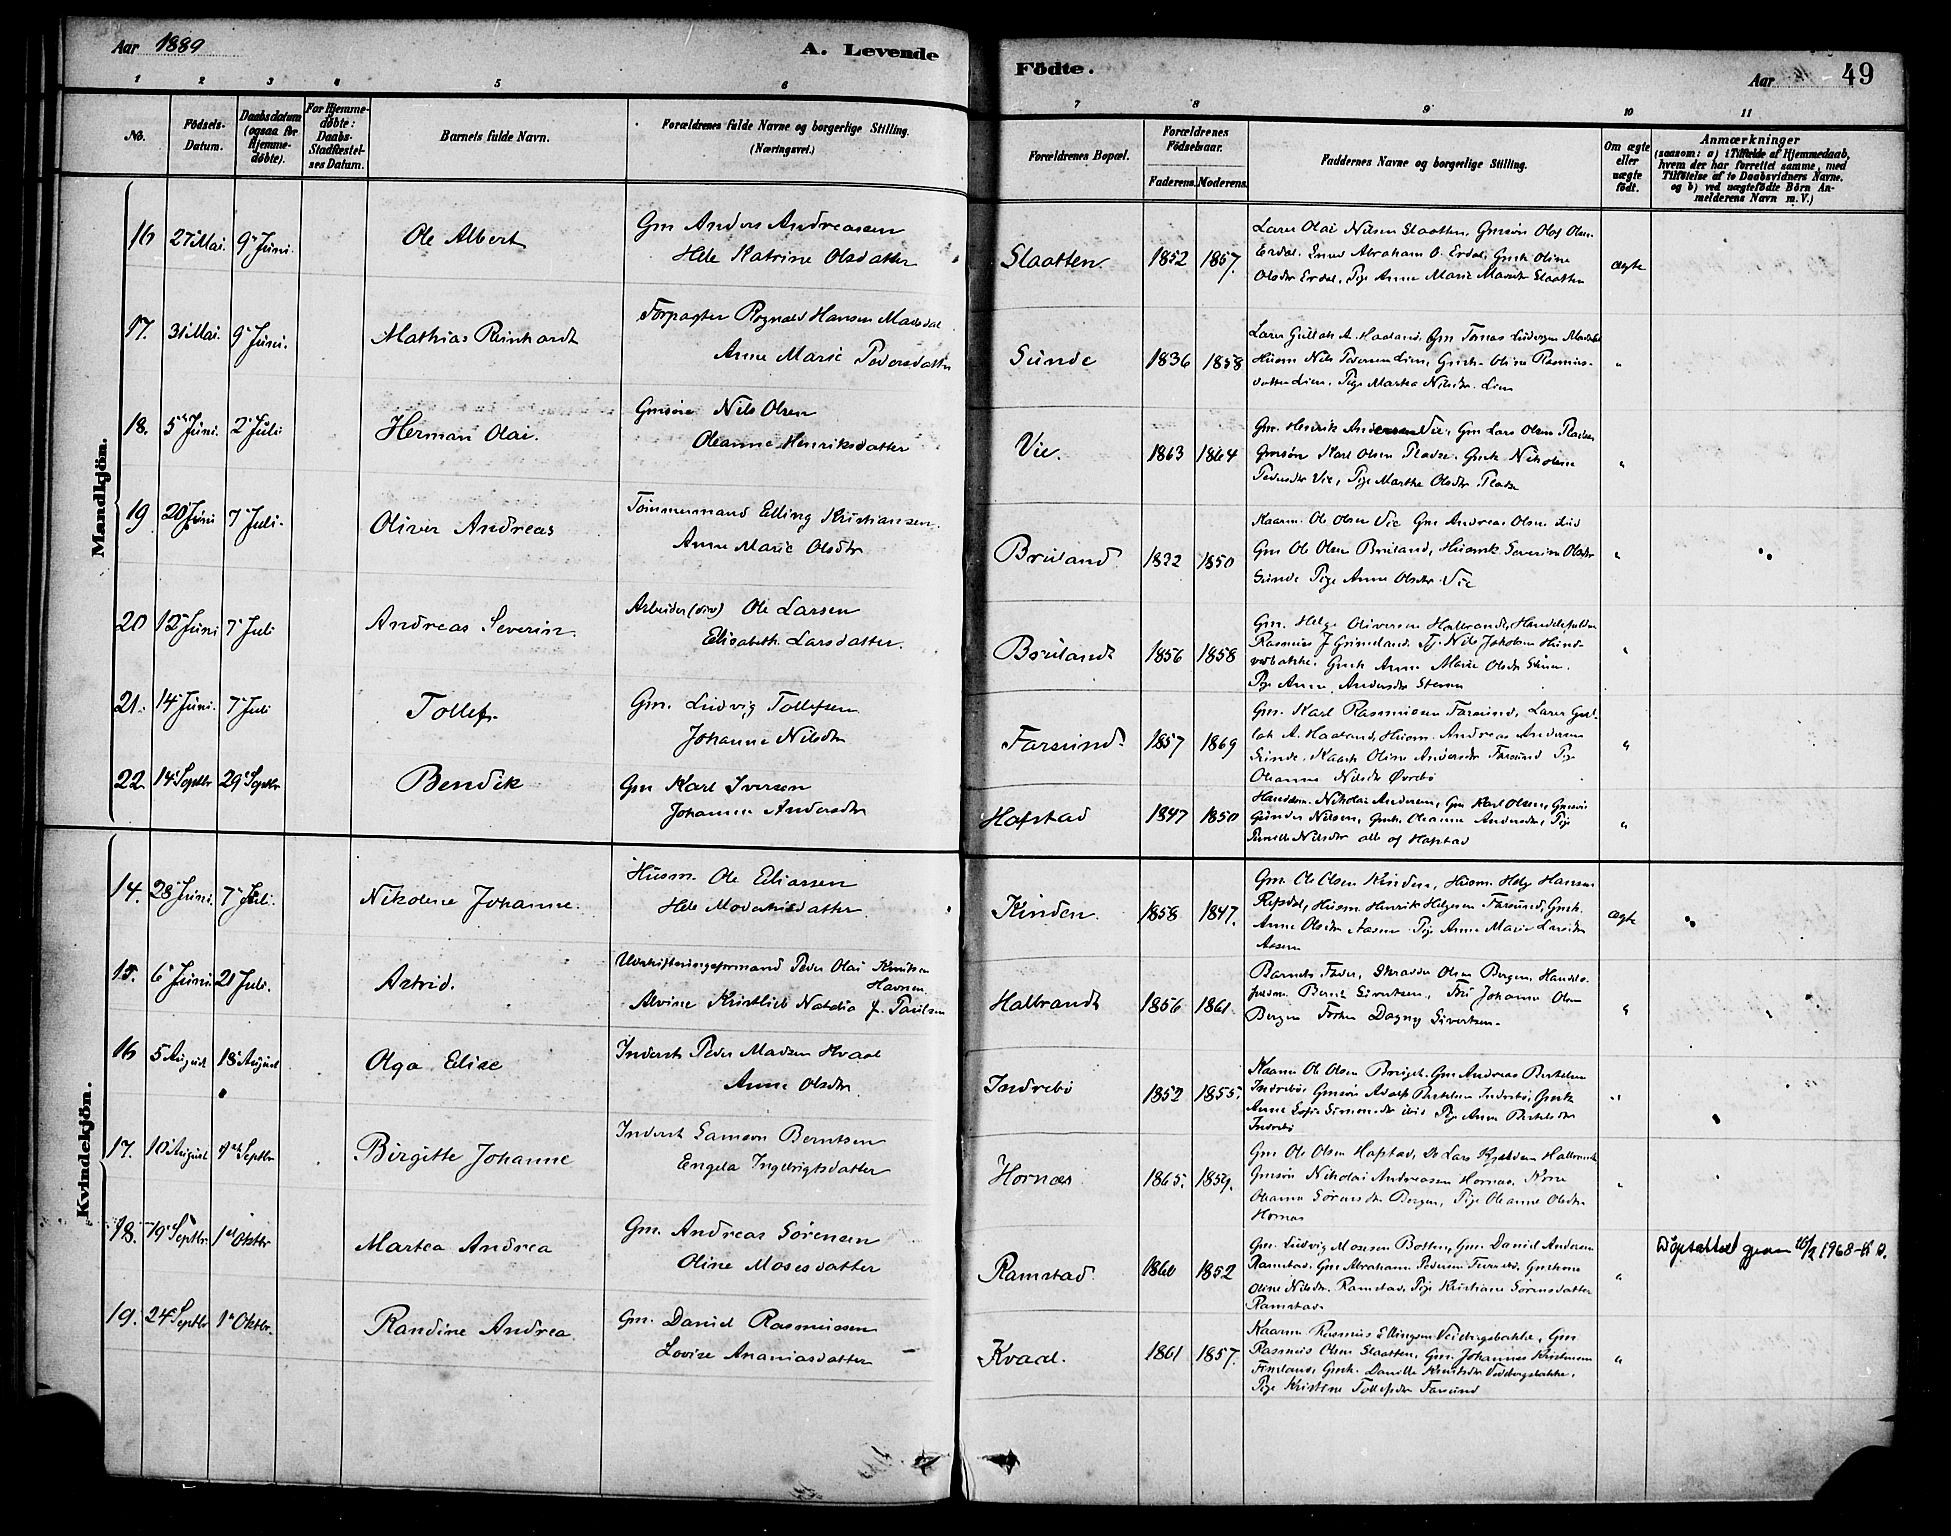 Aar 1889
A. Levende
Födte.
Aar
49
1 2 3 4 5 6 7 8 9 10 11
No.
Födsels-Datum.
Daabsdatum (ogsaa for Hjemme-döbte).
For Hjemme-döbte: Daabs-Stadfæstel-ses Datum.
Barnets fulde Navn.
Forældrenes fulde Navne og borgerlige Stilling.
(Næringsvei.)
Forældrenes Bopæl.
Forældrenes Födselsaar.
Faderens. Moderens.
Faddernes Navne og borgerlige Stilling.
Om ægte eller uægte födt.
Anmærkninger
(saasom: a) i Tilfælde af Hjemmedaab,
hvem der har forrettet samme, med
Tilföielse af to Daabsvidners Navne.
og b) ved uægtefödte Börn An-
melderens Navn m. V.)
Mandkjön.
16 27 Mai. 9 Juni. Ole Albert
Gm Anders Andreasen
Hele Katrine Olsdatter
Slaatten 1852 1857.
Lærer Olai Nilsen Slaatten, Gmsön Olaf Olsen
Erdal, Abraham O. Erdal, Gmk Oline
Olsdtr Erdal, Pige Anne Marie Slaatten
ægte
17. 31 Mai. 9 Juni. Mathias Reinhardt
Forpagter Rognald Hansen
Anne Marie Pedersdatter
Sunde 1836 1858
Lærer A. Haaland, Gm Tomas Ludvigsen
Husm Nils Pedersen Lien, Gmk. Oline Rasmus-
datter Lien, Pige Martha Nilsdtr. Lien
"
18. 5 Juni. 2 Juli Herman Olai.
Gmsön Nils Olsen
Oleanne Henriksdatter
Vie. 1863 1864
Gm. Henrik Andersen Vie, Gm Lars Olsen
Gmsön Karl Olsen, Gmk Nikoline
Pedersdtr Vie, Pige Marthe Olsdtr
"
19 20 Juni 7 Juli. Oliver Andreas
Tömmermand Elling Kristiansen.
Anne Marie Olsdtr
Bruland 1822 1850
Kaarm. Ole Olsen Vie Gm Andreas Olsen
Gm Ole Olsen Bruland, Husmk Severine Olsdtr
Sunde Pige Anne Olsdtr Vie
"
20 12 Juni 7 Juli Andreas Severin.
Arbeider Ole Larsen
Elisabeth Larsdatter.
Bruland 1856 1858
Gm. Helge Oliversen Halbrandt,
Rasmus J Grimeland, Tj. Nils Jakobsen
Gmk Anne Marie Olsdtr
Pige Anne Andersdtr
"
21. 14 Juni. 7 Juli Tollef.
Gm. Ludvig Tollefsen
Johanne Nilsdtr
Farsund. 1857 1869
Gm. Karl Rasmussen Farsund, Lærer
A. Haaland, Husm. Andreas Andersen
Sunde, Kaark Oline Andersdtr Farsund Pige
Oleanne Nilsdtr Övrebö
"
22. 14 Septbr 29 Septbr Bendik
Gm Karl Iversen
Johanne Andersdtr
Hafstad 1847 1850
Nikolai Andersen, Gm Karl Olsen, Gmsön
Gunder Nilsen, Gmk. Oleanne Andersdtr, Pige
Pernille Nilsdtr alle af Hafstad
"
Kvindekjön.
14. 28 Juni. 7 Juli. Nikoline Johanne.
Husm. Ole Eliassen
Hele Modestisdatter.
Kinden. 1858 1847.
Gm. Ole Olsen Kinden, Husm. Helge Hansen
Husm. Henrik Helgesen Farsund, Gmk.
Anne Olsdtr Aasen Pige Anne Marie Larsdtr
Aasen
ægte
15. 6 Juni 21 Juli. Astrid.
Peder Olai Knutsen
Havnen.
Alvine Kristlieb Natalia f. Paulsen
Halbrandt 1856 1861.
Barnets Fader, Skrædder Olsen Bergen,
Bernt Sivertsen, Fru Johanne Olsen
Bergen Dagny Sivertsen.
"
16 5 August 18 August Olga Elise
Inderst Peder Madsen Hvaal
Anne Olsdtr
Indrebö 1852 1855.
Kaarm Ole Olsen, Gm Andreas Bertelsen
Indrebö, Gmsön Adolf Bertelsen Indrebö, Gmk
Anne Sofie Simonsdtr ibid Pige Anne Bertelsdtr
Indrebö
"
17. 10 August 1ste Septbr Birgitte Johanne
Inderst Samson Berntsen
Engela Ingebrigtsdatter
Hornæs 1865. 1859.
Gm Ole Olsen Hafstad, Lars Halbrandt
Gmsön Nikolai Andreasen Hornæs, Kone
Oleanna Sörensdtr Bergen, Pige Oleanne Olsdtr
Hornæs
"
18. 19 Septbr. 1ste Oktbr Martea Andrea
Gm. Andreas Sörensen
Oline Mosesdatter
Ramstad. 1860 1852
Gm. Ludvig Mosesen Botten, Gm. Daniel Andersen
Ramstad, Gm Abraham Pedersen, Gmkone
Oline Nilsdtr. Ramstad, Pige Kristiane Sörensdatter
Ramstad.
"
Döpeattest 16/2 1968
19. 24 Septbr 1ste Oktbr. Randine Andrea
Gm. Daniel Rasmussen
Lovise Ananiasdatter
Kvaal. 1861 1857.
Kaarm Rasmus Ellingsen Vedvigsbakke, Gm
Rasmus Olsen Slaatten, Gm. Johannes Kristensen
Fineland, Gmk. Danille Knutsdtr Vedvigsbakke,
Pige Kristine Tollefsdtr Farsund
"